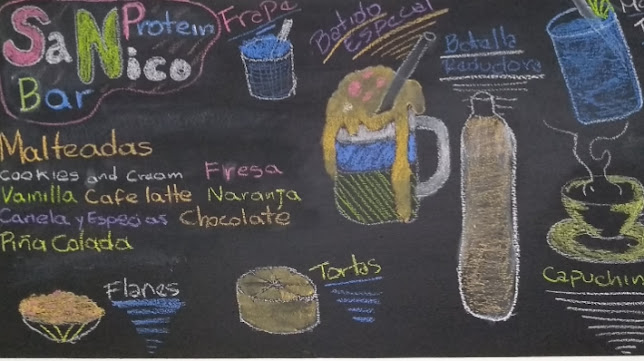 SaNico Protein Bar
Malteadas
Cookies and Cream Fresa
Vainilla Cafe latte Naranja
Canela y Especias Chocolate
Piña Colada
Flanes
FraPa
Batido Especial
Botella
Tortas
Capuchin